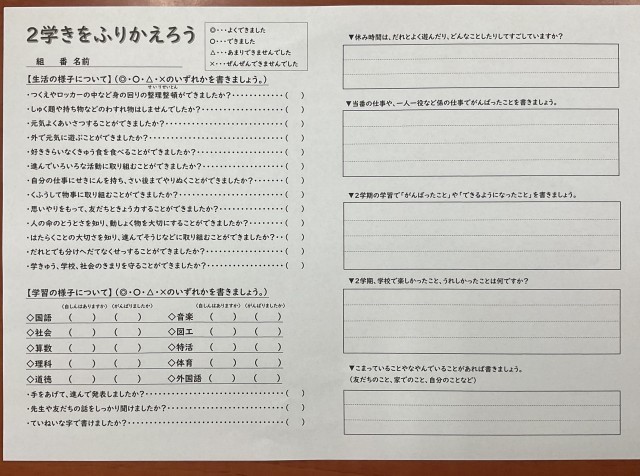 2学きをふりかえろう
◎・・・よくできました
○・・・できました
△・・・あまりできませんでした
×・・・ぜんぜんできませんでした
組　番 名前
【生活の様子について】(◎・○・△・×のいずれかを書きましょう。)
せいりせいとん
・つくえやロッカーの中など身の回りの整理整頓ができましたか?(　)
・しゅく題や持ち物などのわすれ物はしませんでしたか?(　)
・元気よくあいさつすることができましたか?(　)
・外で元気に遊ぶことができましたか?(　)
・好ききらいなくきゅう食を食べることができましたか?(　)
・進んでいろいろな活動に取り組むことができましたか?(　)
・自分の仕事にせきにんを持ち、さい後までやりぬくことができましたか?(　)
・くふうして物事に取り組むことができましたか?(　)
・思いやりをもって、友だちときょう力することができましたか?(　)
・人の命のとうとさを知り、動しょく物を大切にすることができましたか?(　)
・はたらくことの大切さを知り、進んでそうじなどに取り組むことができましたか?(　)
・だれとでも分けへだてなくせっすることができましたか?(　)
・学きゅう、学校、社会のきまりを守ることができましたか?(　)
【学習の様子について】(◎・○・△・×のいずれかを書きましょう。)
(自しんはありますか) (がんばりましたか) (自しんはありますか) (がんばりましたか)
◇国語 (　) (　) ◇音楽 (　) (　)
◇社会 (　) (　) ◇図工 (　) (　)
◇算数 (　) (　) ◇特活 (　) (　)
◇理科 (　) (　) ◇体育 (　) (　)
◇道徳 (　) (　) ◇外国語 (　) (　)
・手をあげて、進んで発表しましたか?(　)
・先生や友だちの話をしっかり聞けましたか?(　)
・ていねいな字で書けましたか?(　)
▼休み時間は、だれとよく遊んだり、どんなことしたりしてすごしていますか?
▼当番の仕事や、一人一役など係の仕事でがんばったことを書きましょう。
▼2学期の学習で「がんばったこと」や「できるようになったこと」を書きましょう。
▼2学期、学校で楽しかったこと、うれしかったことは何ですか?
▼こまっていることやなやんでいることがあれば書きましょう。
(友だちのこと、家でのこと、自分のことなど)